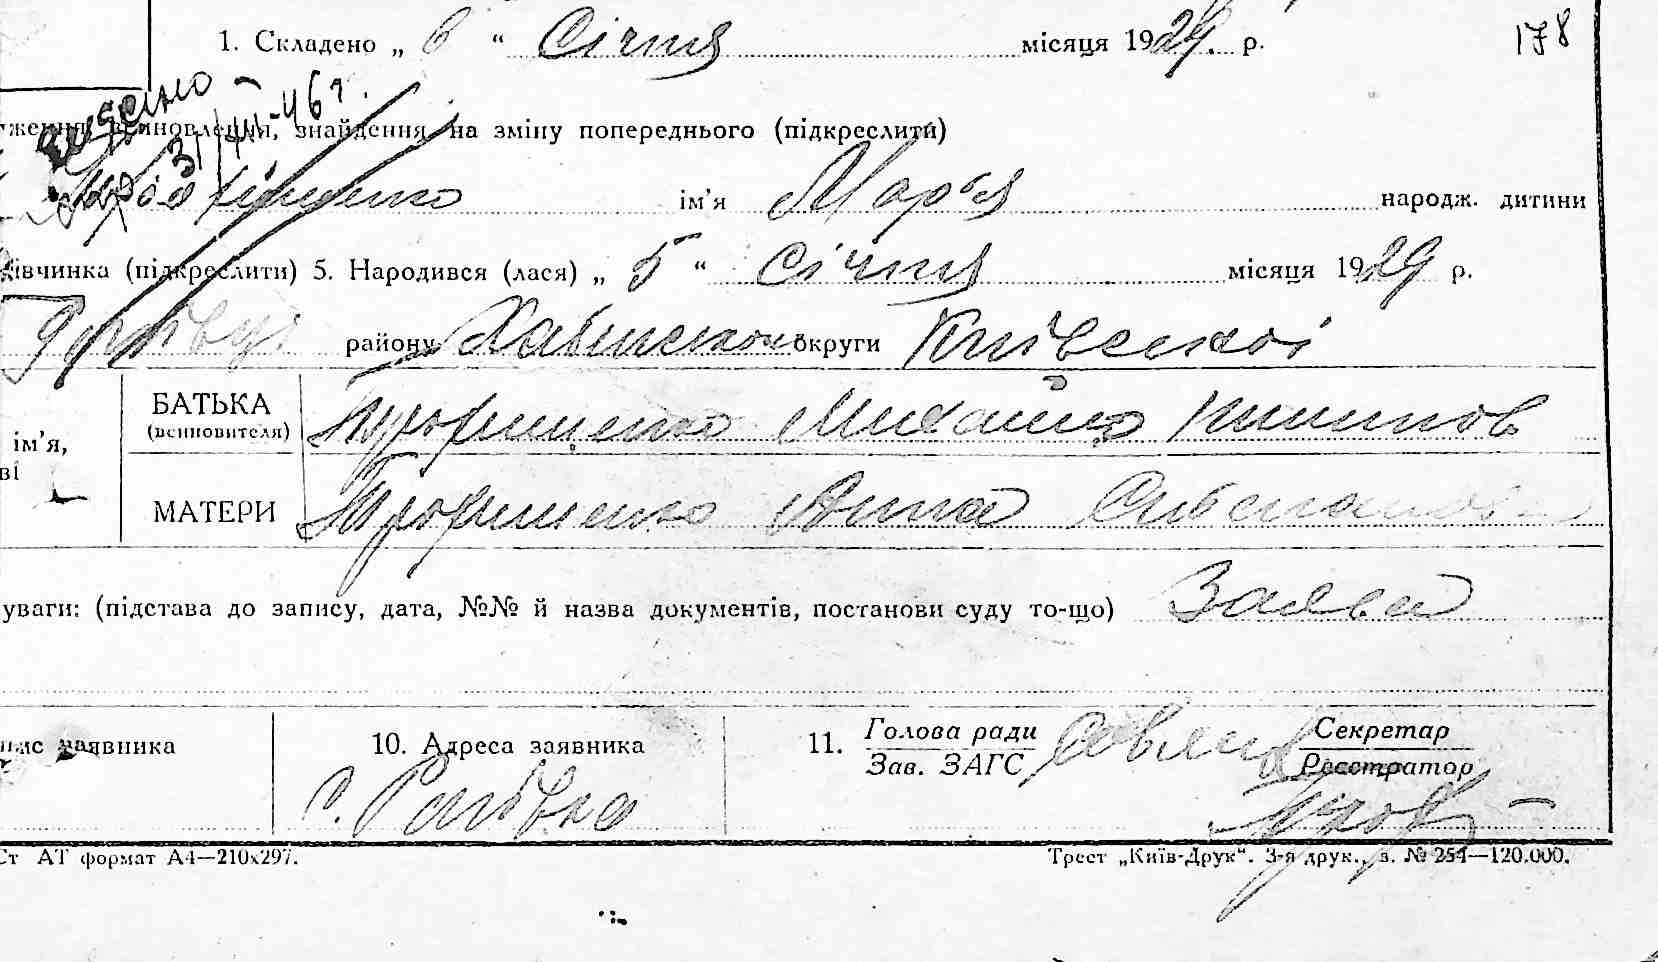 1. Складено „ 6 “ Січня місяця 1929. р. 178
видано 31/XII-46 г.
ження, всиновлення, знайдення, на зміну попереднього (підкреслити)
Трофименко ім’я Мар’я народж. дитини
івчинка (підкреслити) 5. Народився (лася) „ 5 “ Січня місяця 1929 р.
району Хабенської округи Київської
БАТЬКА Трофименко Михайло
(всиновителя)
ім’я,
ві
МАТЕРИ Трофименко Анна Степанов
уваги: (підстава до запису, дата, №№ й назва документів, постанови суду то-що) Заява
пис заявника 10. Адреса заявника 11. Голова ради Секретар
Зав. ЗАГС Реєстратор
с.
Ст АТ формат А4—210х297. Трест „Київ-Друк“. 3-я друк., з. № 254—120.000.